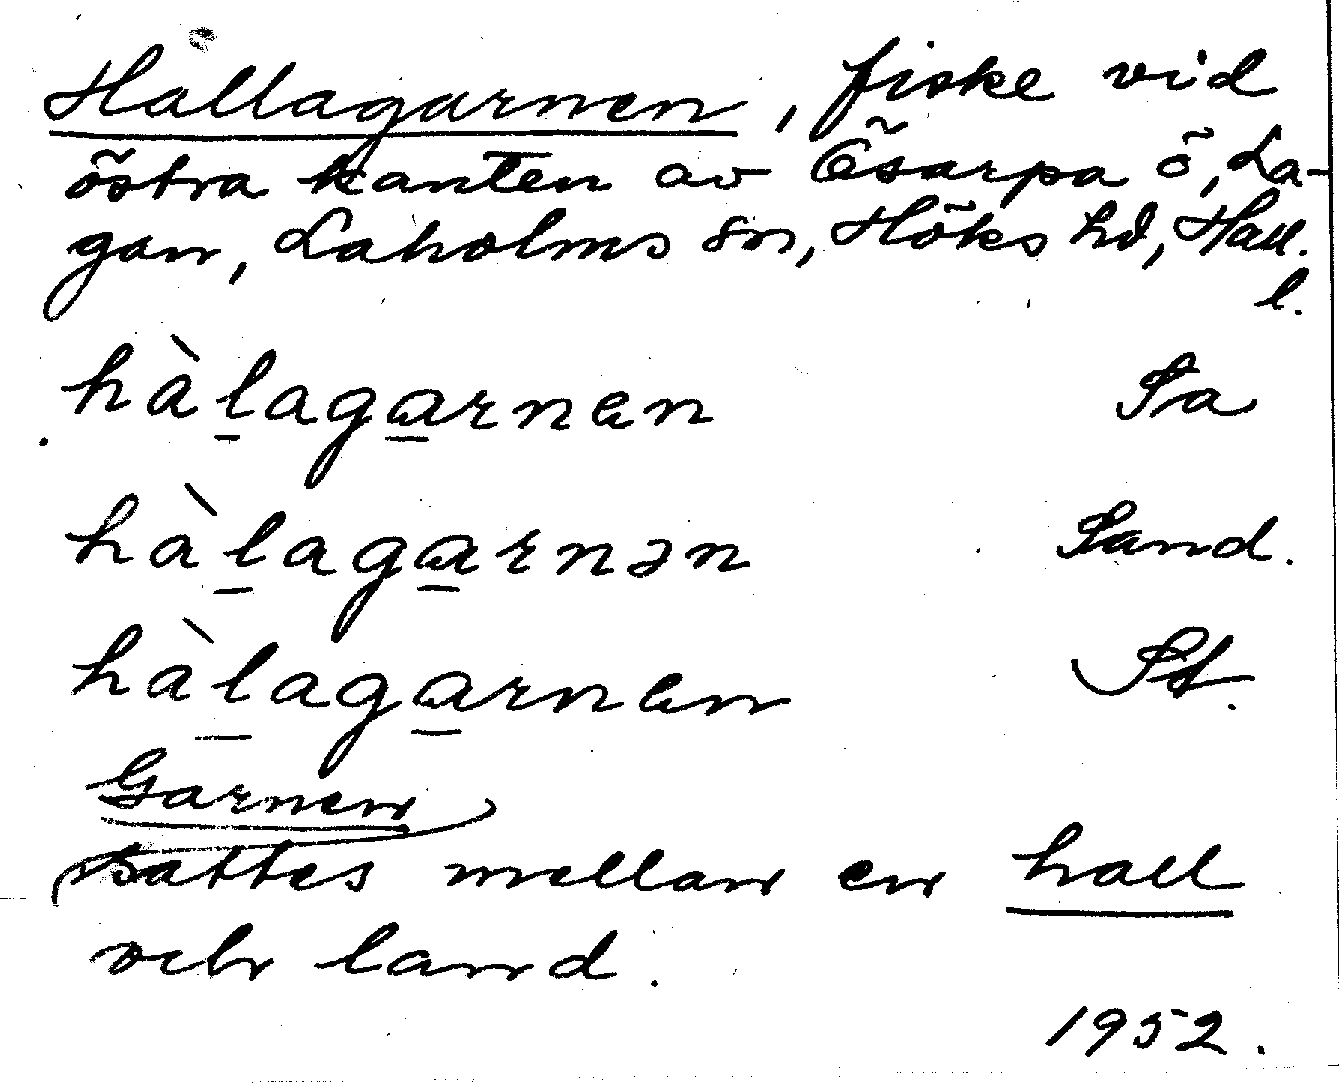 Hallagarnen, fiske vid
östra kanten av Ösarpa ö, La-
gan, Laholms sn, Höks hd, Hall.
l.
hàlagarnen Sa
hàlagarnən Sand.
hàlagarnen St.
Garnen
sattes mellan en hall
och land.
1952.